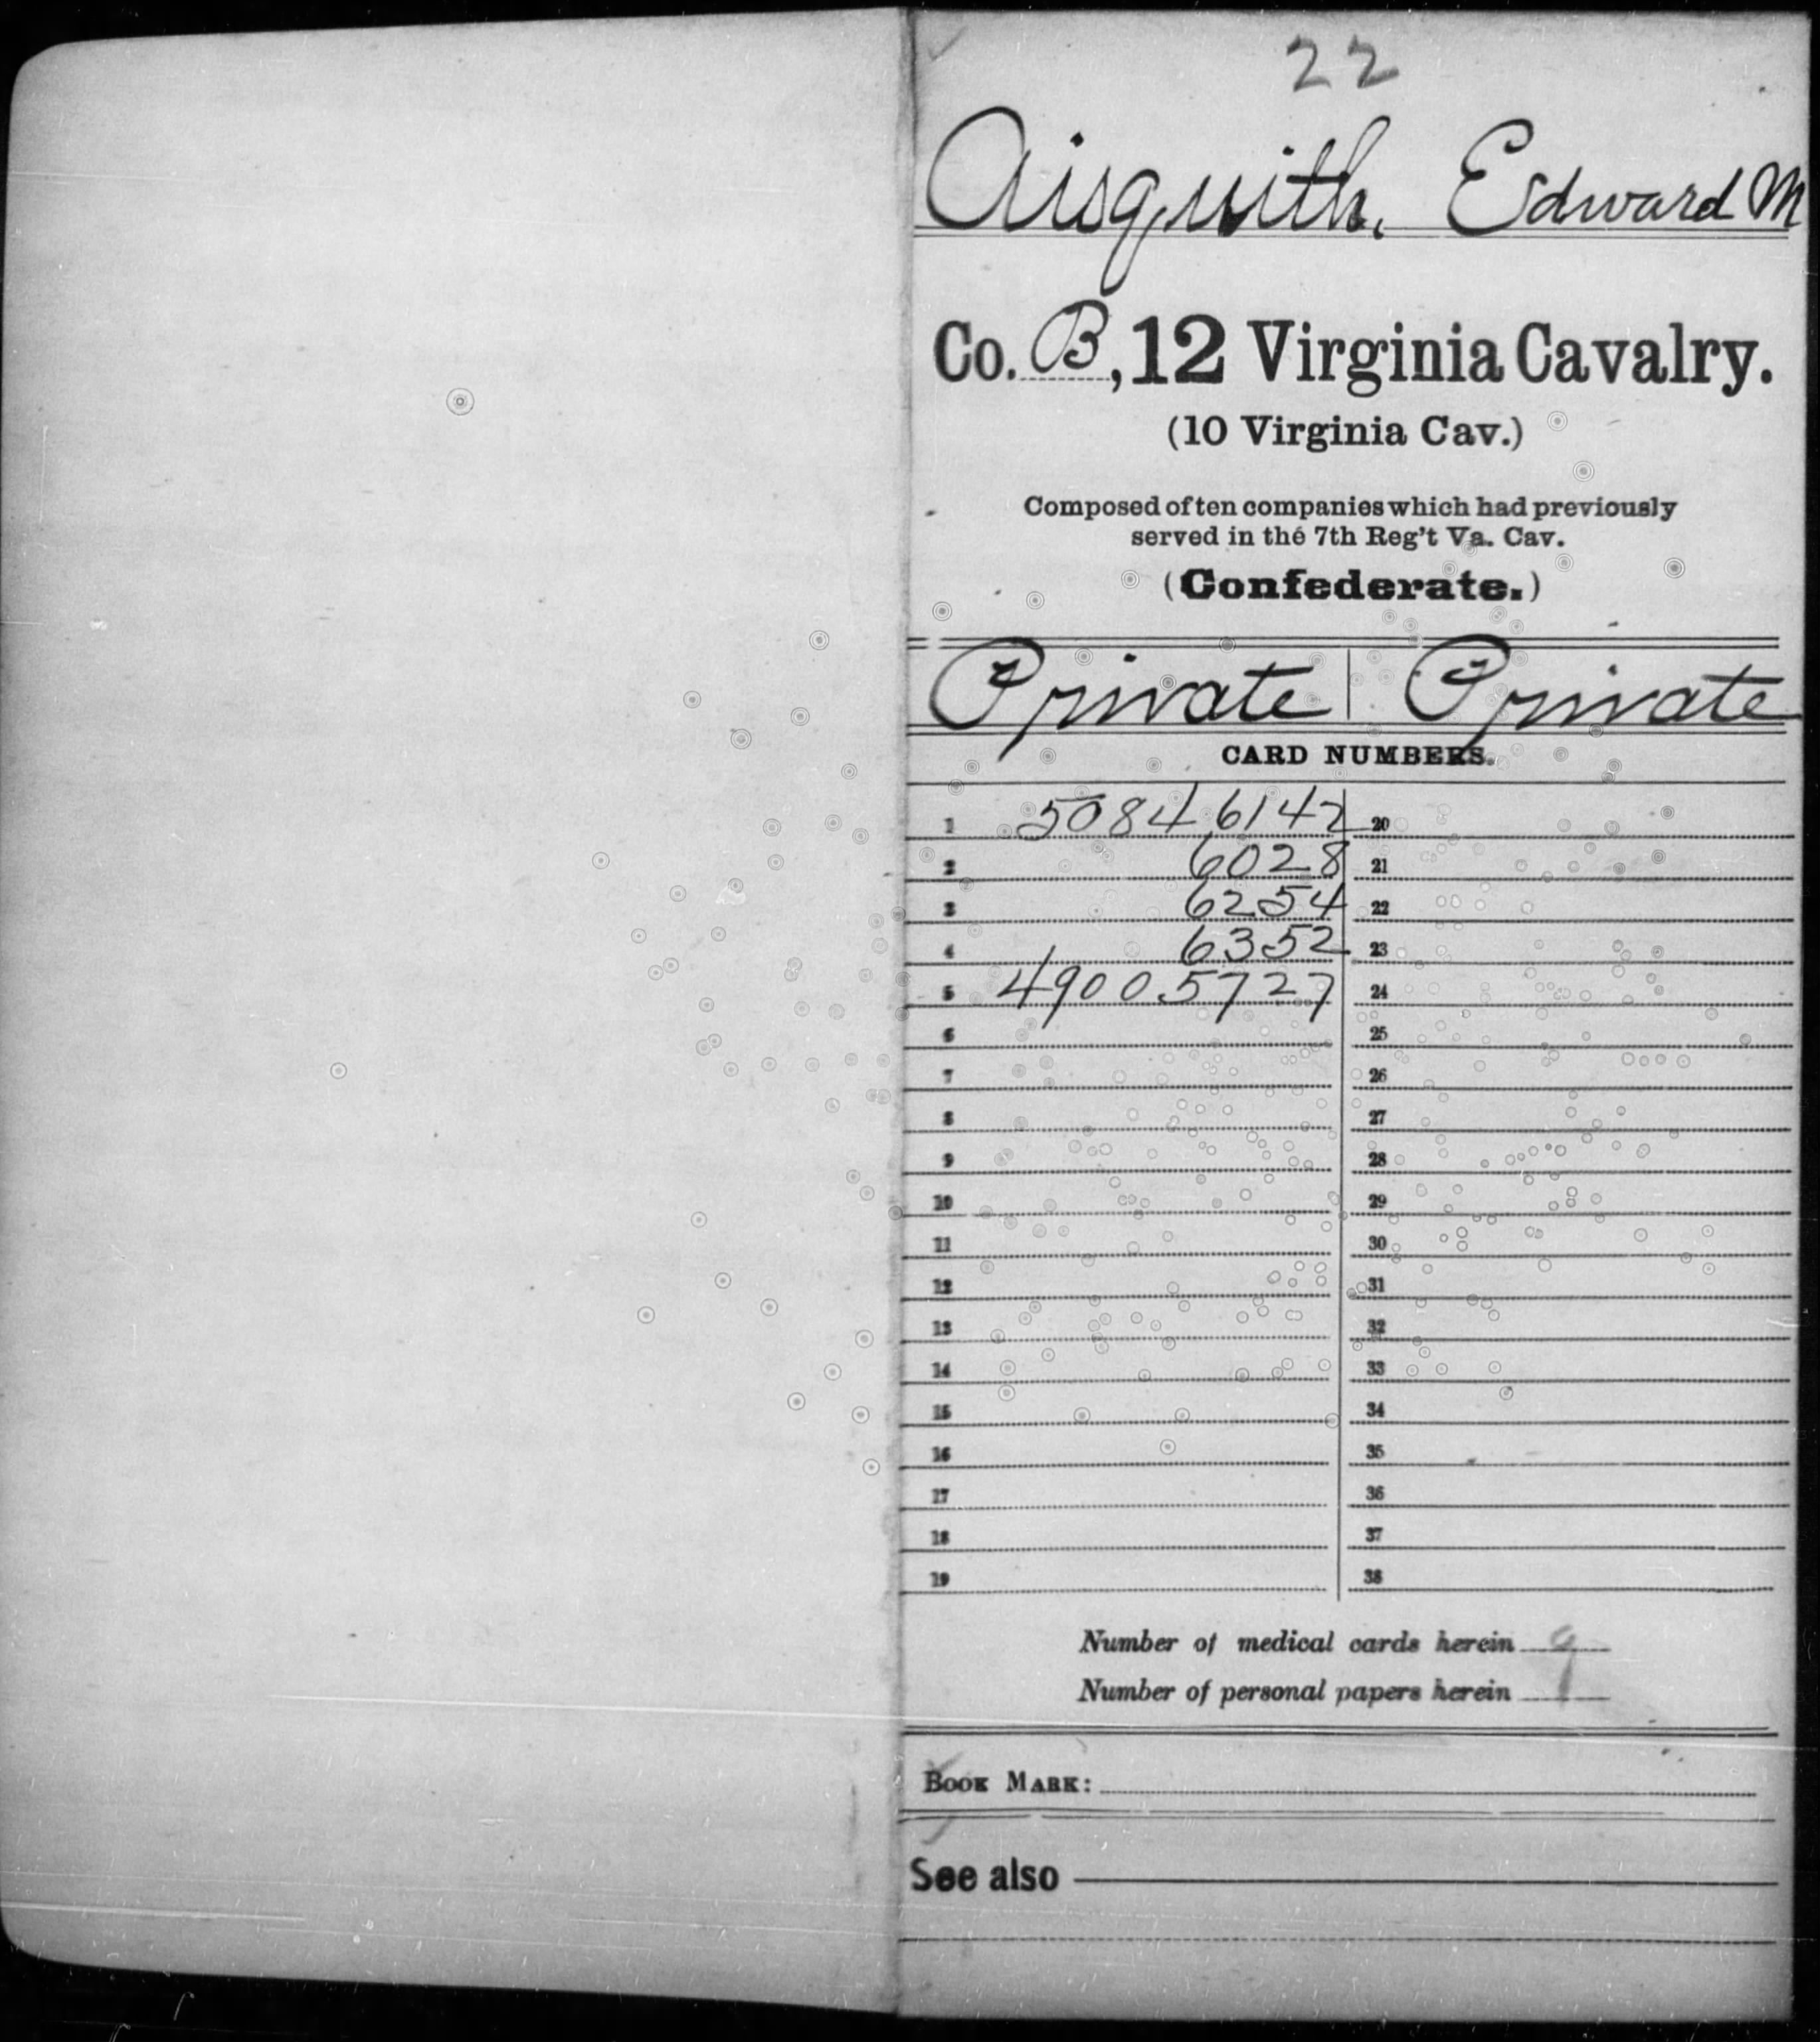 22
Aisquith, Edward M
Co. B, 12 Virginia Cavalry.
(10 Virginia Cav.)
Composed of ten companies which had previously
served in the 7th Reg't Va. Cav.
(Confederate.)
Private | Private
CARD NUMBERS.
1 50846142 20
2 6028 21
3 6254 22
4 6352 23
5 49005727 24
6 25
7 26
8 27
9 28
10 29
11 30
12 31
13 32
14 33
15 34
16 35
17 36
18 37
19 38
Number of medical cards herein
Number of personal papers herein
BOOK MARK:
See also